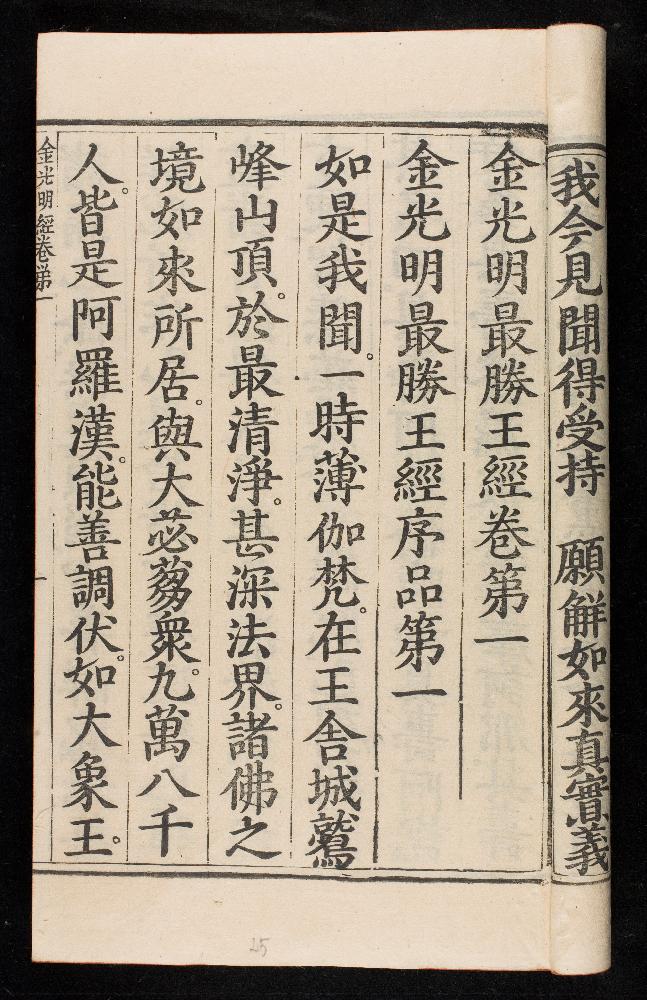 我今見聞得受持　願解如來真實義
金光明最勝王經卷第一
金光明最勝王經序品第一
如是我聞。一時薄伽梵。在王舍城鷲
峰山頂。於最清淨。甚深法界。諸佛之
境如來所居。與大苾蒭衆。九萬八千
人。皆是阿羅漢。能善調伏。如大象王。
金光明經卷第一
一
25